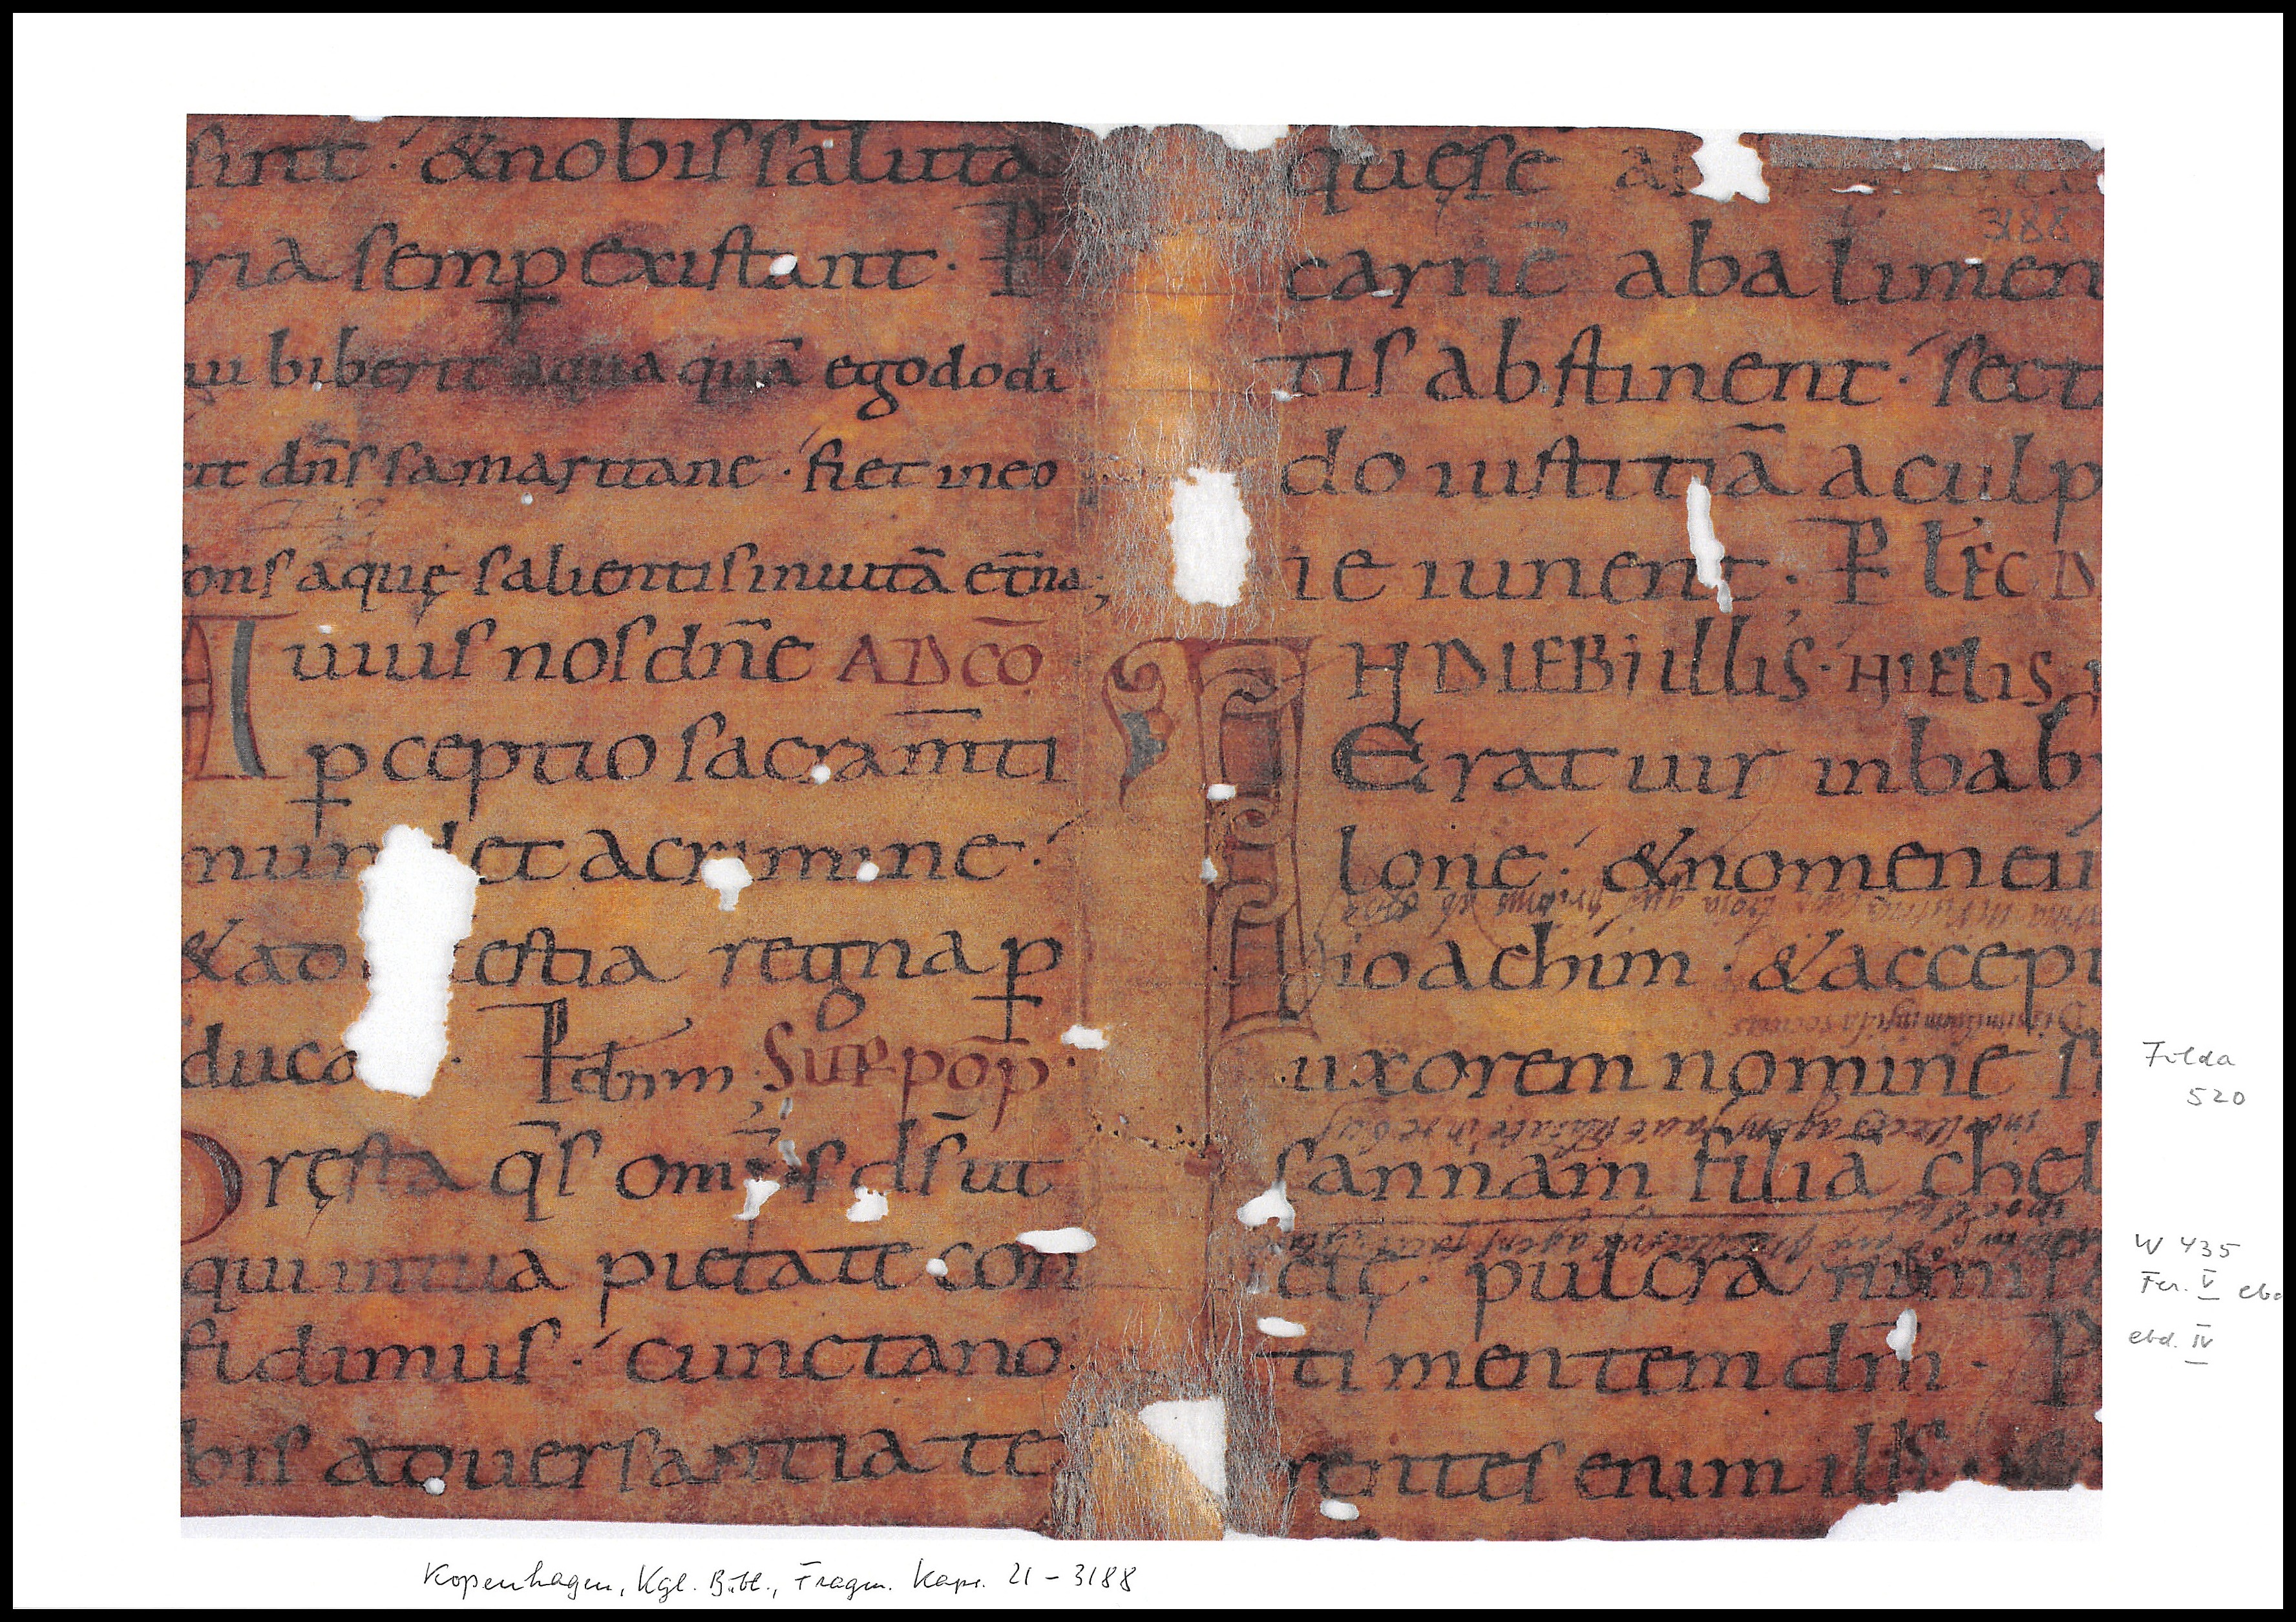 sint · & nobis saluta
ria semp existant · P
qui biberit aqua quā ego do di
cit dn̄s samaritane · fiet in eo
fons aquę salientis in uitā et̄na ;
A uiuis nos dn̄e AD CŌ
p ceptio sacram̄ti
mundet a crimine ·
& ad cęlestia regna p
duca · P dnm SUP POP̄ ·
Pręsta q̄s omps ds̄ ut
qui in tua pietate con
fidimus · cuncta no
bis aduersantia te
quęse
carnē ab alimen
tis abstinent · sect
do iustitiā a culp
ieiunent · P LEC D
IN DIEBUS ILLIS ·
Erat uir in baby
lone · & nomen eiu
ioachim · & accepi
uxorem nomine su
sannam filiā chel
cię · pulcrā nimis
timentem dn̄m · P
rentes enim illiS ·
3188
Fulda
520
W 435
Fer. V ebd
ebd. IV
Kopenhagen, Kgl. Bibl., Fragm. Kaps. 21 – 3188